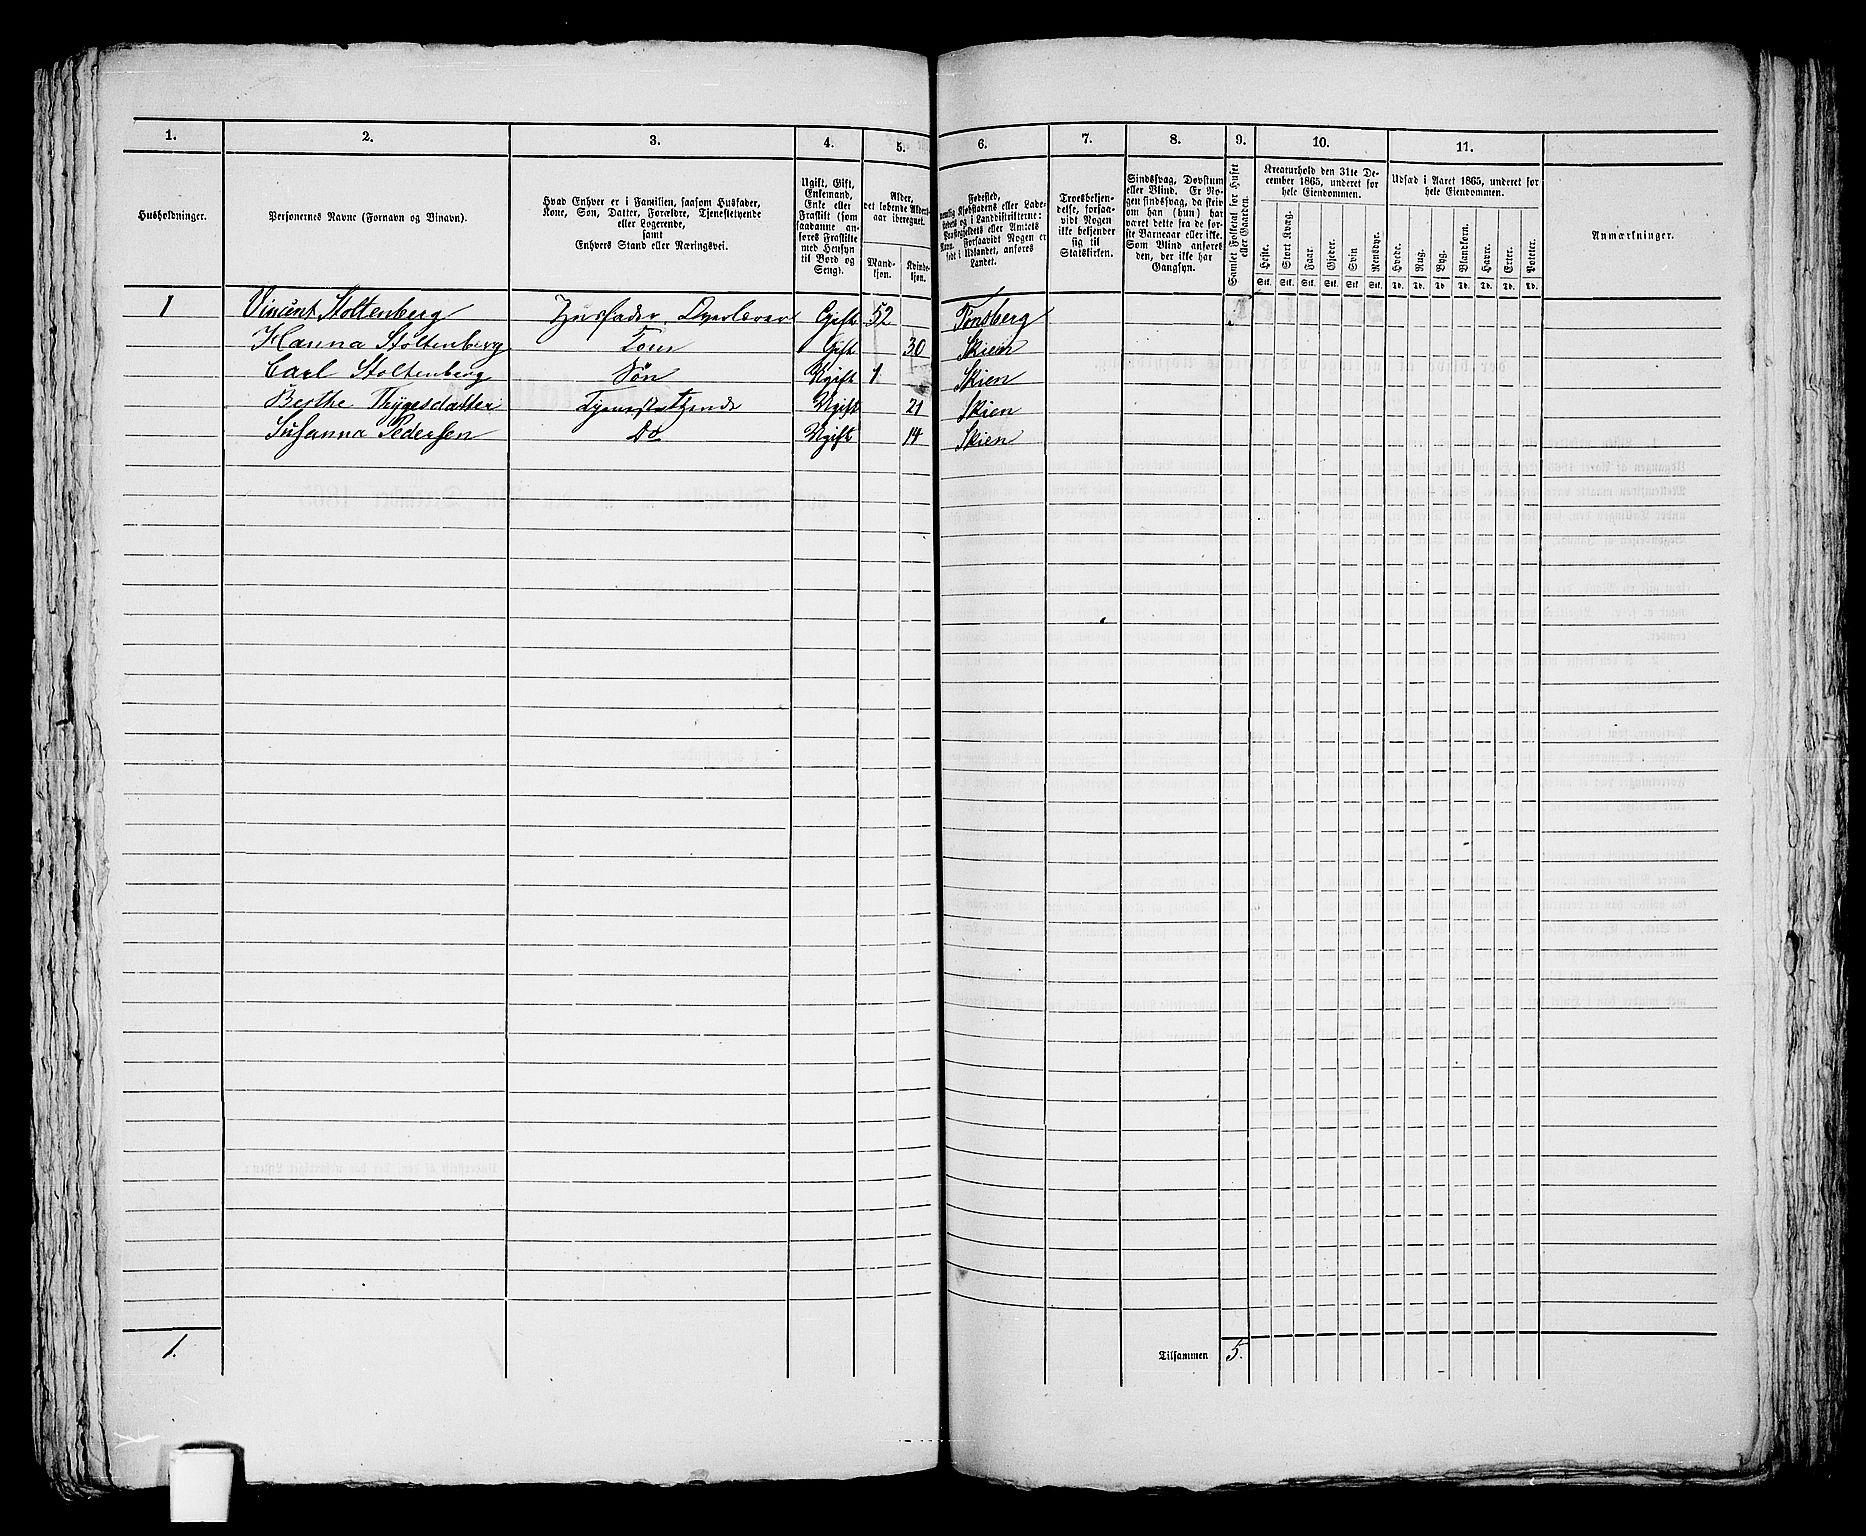 1. 2. 3. 4. 5. 6. 7. 8. 9. 10. 11.
Husholdninger.
Personernes Navne (Fornavn og Binavn).
Hvad Enhver er i Familien, saasom Husfader,
Kone, Søn, Datter, Forældre, Tjenestetyende
eller Logerende,
samt
Enhvers Stand eller Næringsvei.
Ugift, Gift,
Enkemand,
Enke eller
Fraskilt (som
saadanne an-
føres Fraskilte
med Hensyn
til Bord og
Seng).
Alder,
det løbende Alders-
aar iberegnet.
Mand-
kjøn.
Kvinde-
kjøn.
Fødested,
nemlig Kjøbstadens eller Lade-
stedets og i Landdistrikterne:
Præstegjeldets eller Amtets
Navn. Forsaavidt Nogen er
født i Udlandet, anføres
Landet.
Troesbekjen-
delse, forsaa-
vidt Nogen
ikke bekjender
sig til
Statskirken.
Sindssvag, Døvstum
eller Blind. Er No-
gen sindssvag, da skriv
om han (hun) har
været dette fra de før-
ste Barneaar eller ikke.
Som Blind anføres
den, der ikke har
Gangsyn.
Samlet Folketal for Huset
eller Gaarden.
Kreaturhold den 31te De-
cember 1865, underet for
hele Eiendommen.
Heste. Stort Kvæg. Faar. Gjeder. Svin Rensdyr.
Stk. Stk. Stk. Stk. Stk. Stk.
Udsæd i Aaret 1865, underet for
hele Eiendommen.
Hvede. Rug. Byg. Blandkorn. Havre. Erter. Poteter.
Td. Td. Td Td. Td. Td. Td.
Anmærkninger.
1 Vincent Stoltenberg Husfader Gift 52 Tønsberg
Hanna Stoltenberg Gift 30 Skien
Carl Stoltenberg Søn Ugift 1 Skien
Berthe Thygesdatter Ugift 21 Skien
Susanna Pedersen Do Ugift 14 Skien
1. Tilsammen 5.